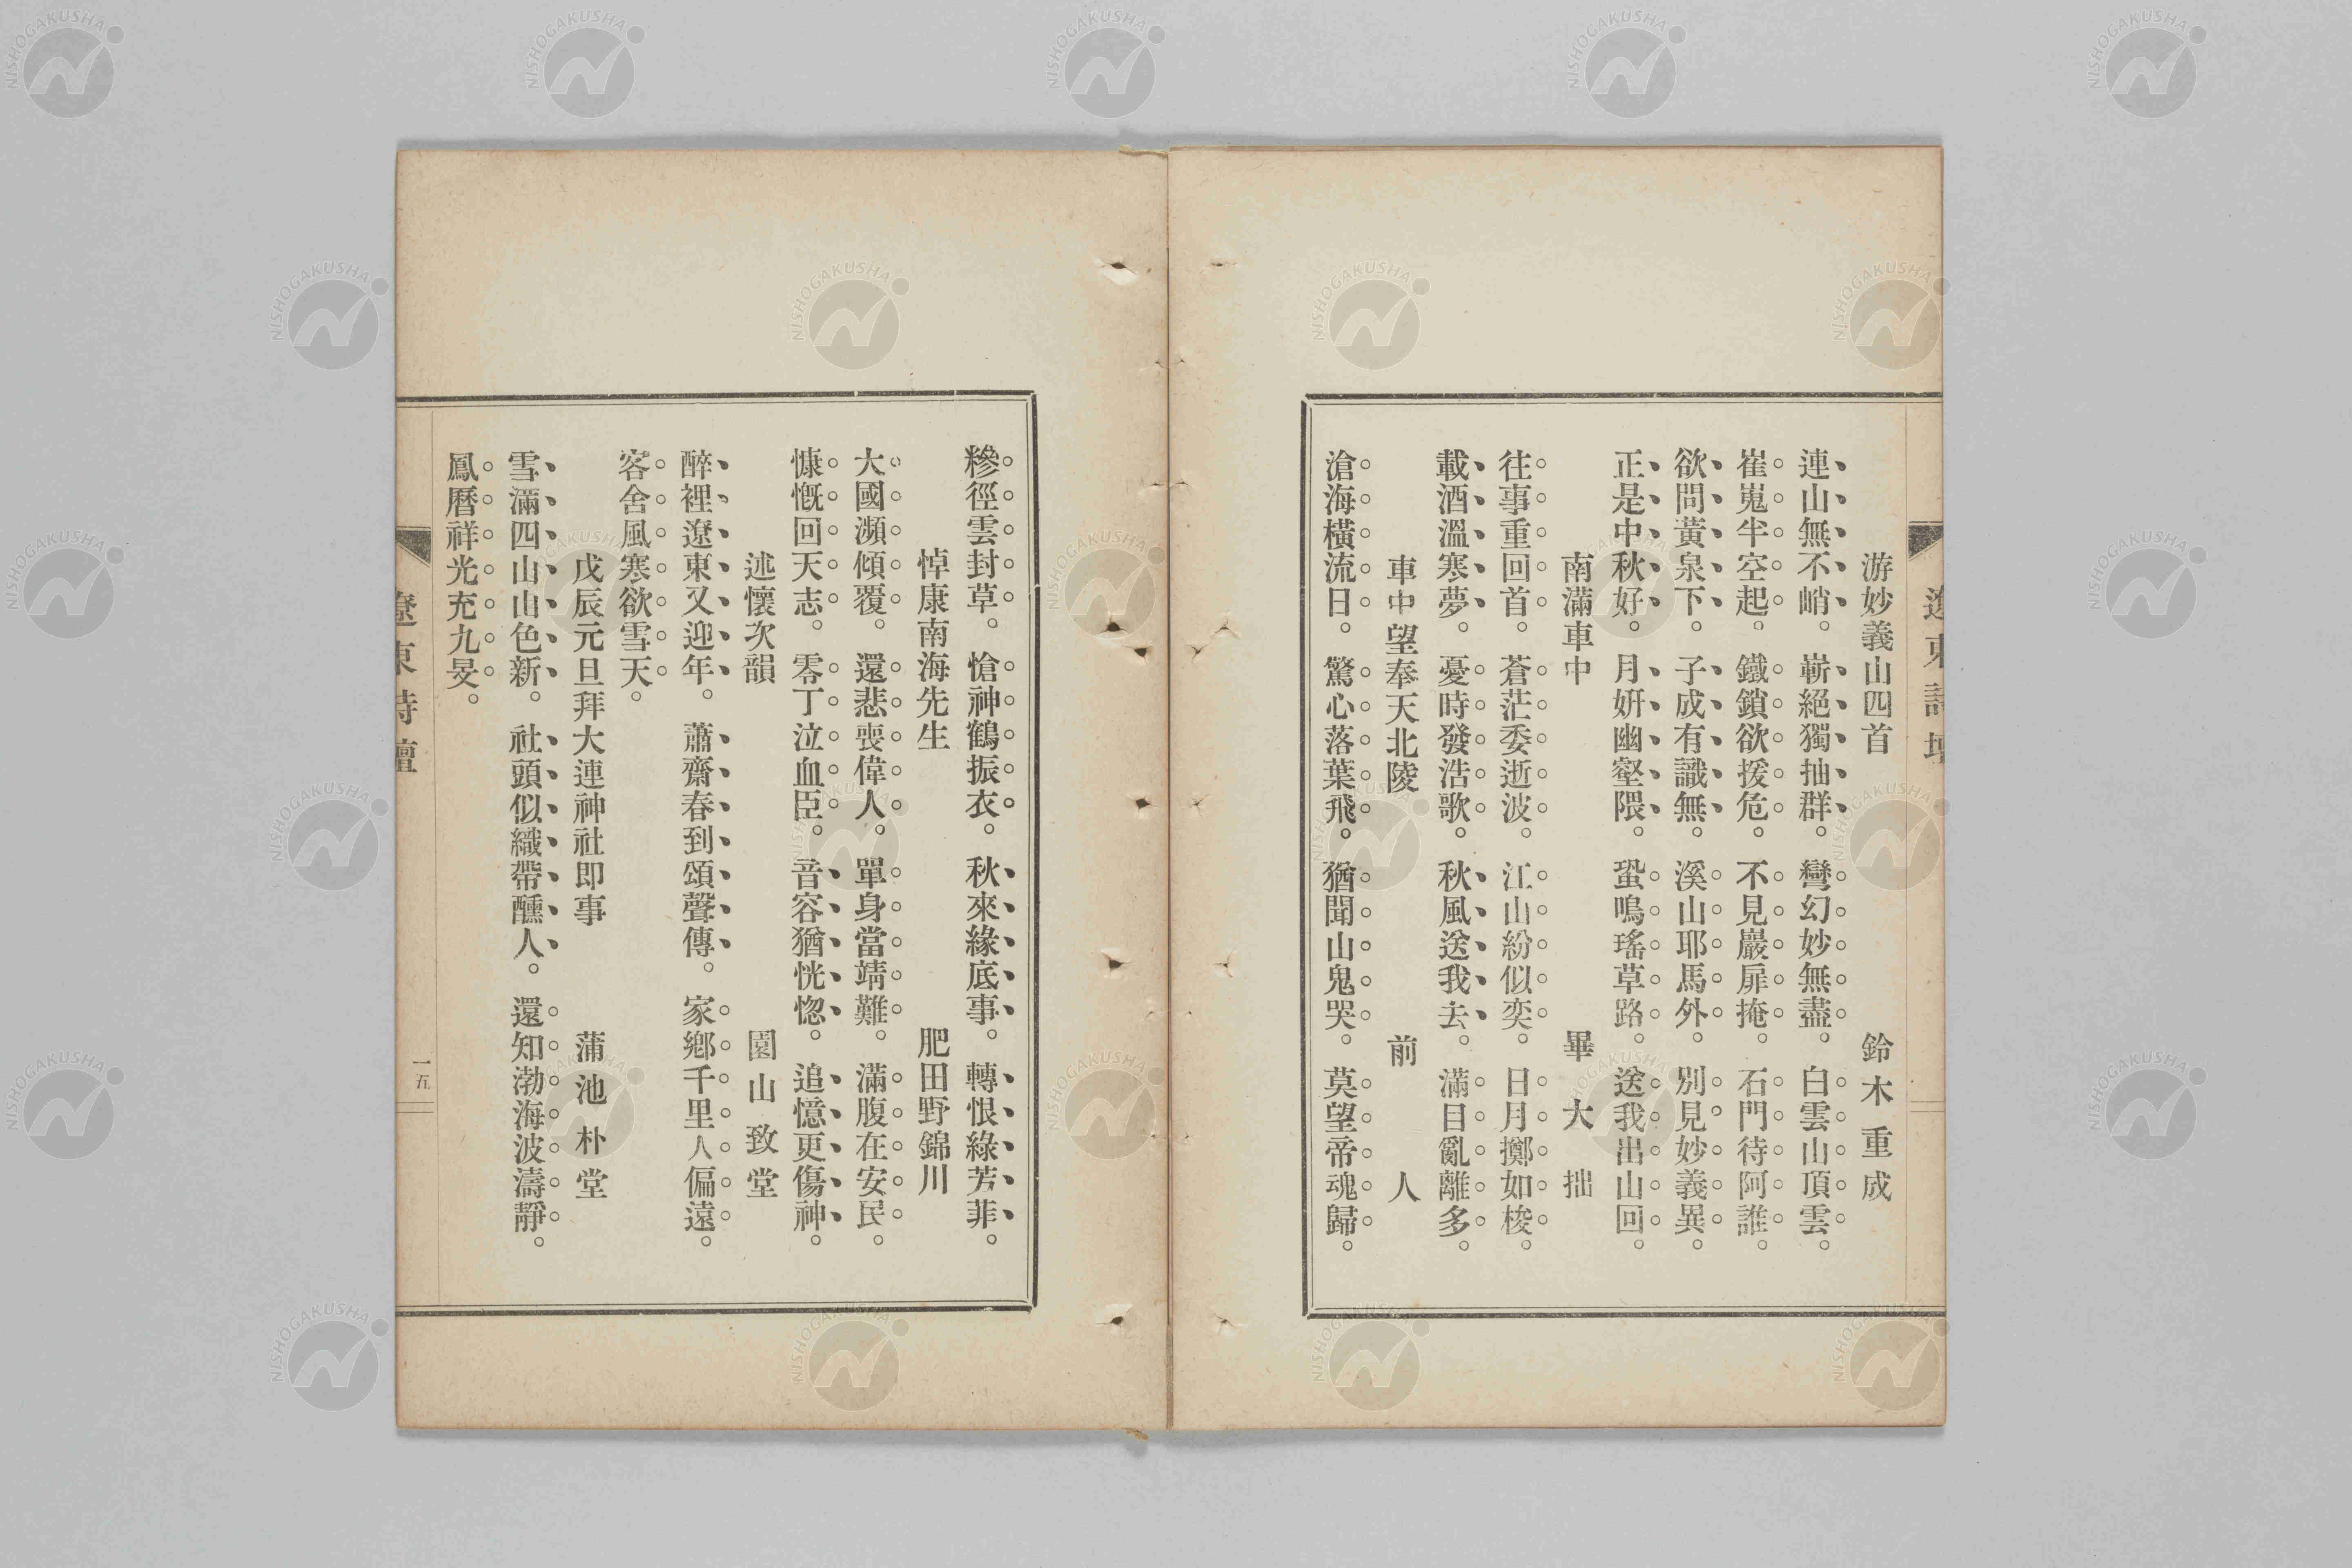 遼東詩壇
游妙義山四首　鈴木重成
連山無不峭。嶄絕獨抽群。彎幻妙無盡。白雲山頂雲。
崔嵬半空起。鐵鎖欲援危。不見巖扉掩。石門待阿誰。
欲問黃泉下。子成有識無。溪山耶馬外。別見妙義異。
正是中秋好。月妍幽壑隈。蛩鳴瑤草路。送我出山回。
南滿車中　畢大拙
往事重回首。蒼茫委逝波。江山紛似奕。日月擲如梭。
載酒溫寒夢。憂時發浩歌。秋風送我去。滿目亂離多。
車中望奉天北陵　前人
滄海橫流日。驚心落葉飛。猶聞山鬼哭。莫望帝魂歸。
糝徑雲封草。愴神鶴振衣。秋來緣底事。轉恨綠芳菲。
悼康南海先生　肥田野錦川
大國瀕傾覆。還悲喪偉人。單身當靖難。滿腹在安民。
慷慨回天志。零丁泣血臣。音容猶恍惚。追憶更傷神。
述懷次韻　園山致堂
醉裡遼東又迎年。蕭齋春到頌聲傳。家鄉千里人偏遠。
客舍風寒欲雪天。
戊辰元旦拜大連神社即事　蒲池朴堂
雪滿四山山色新。社頭似織帶醺人。還知渤海波濤靜。
鳳曆祥光充九旻。
遼東詩壇
一五
NISHOGAKUSHA